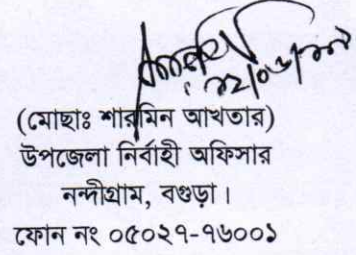 (মোছাঃ শারমিন আখতার)
উপজেলা নির্বাহী অফিসার
নন্দীগ্রাম, বগুড়া।
ফোন নং ০৫০২৭-৭৬০০১